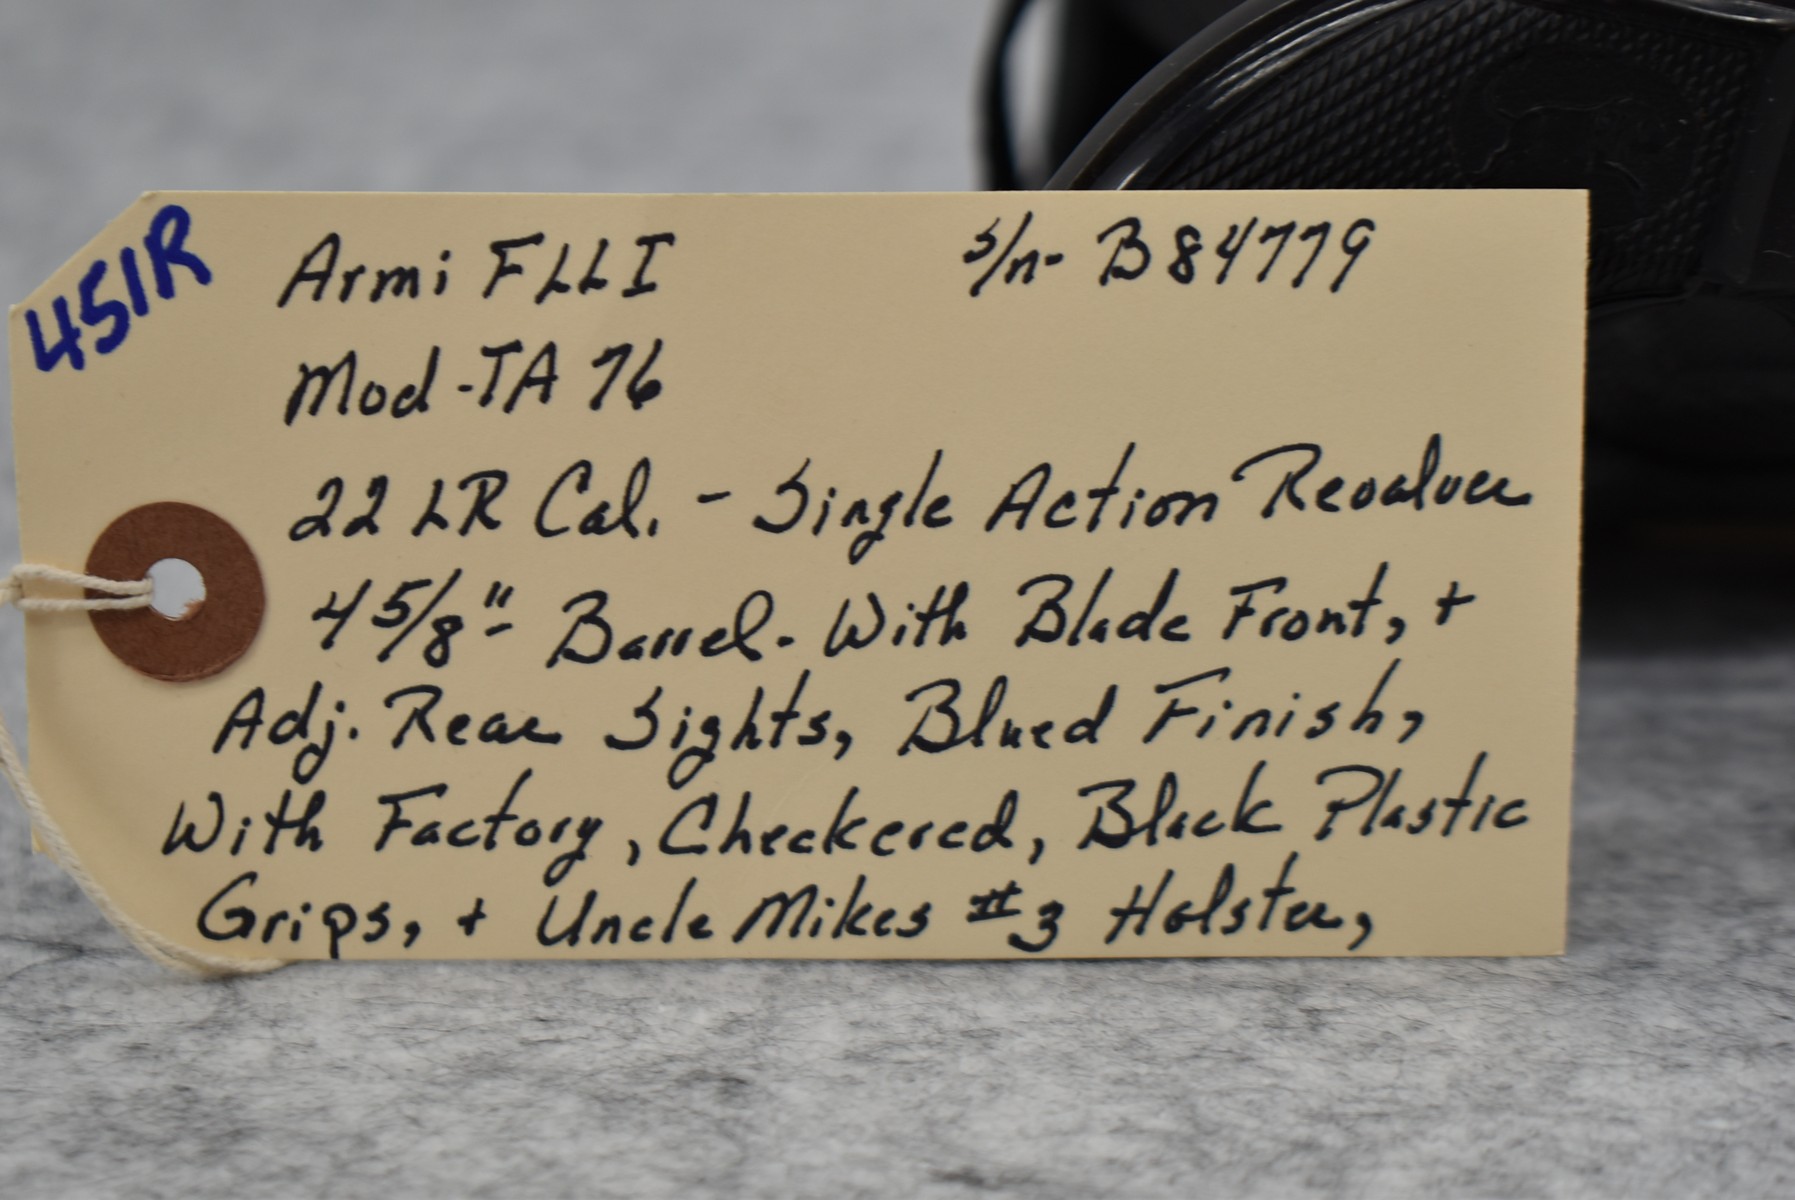 451R
Armi FLLI s/n- B84779
Mod-TA 76
22 LR Cal. - Single Action Revolver
4 5/8"- Barrel. With Blade Front, +
Adj. Rear Sights, Blued Finish,
With Factory, Checkered, Black Plastic
Grips, + Uncle Mikes #3 Holster,